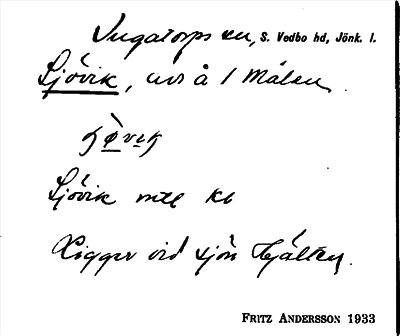 Ingatorps sn, S. Vedbo hd, Jönk. l.
Sjövik, å / Målen
Sjövik mtl kb
Ligger vid sjön Hjälten.
FRITZ ANDERSSON 1933